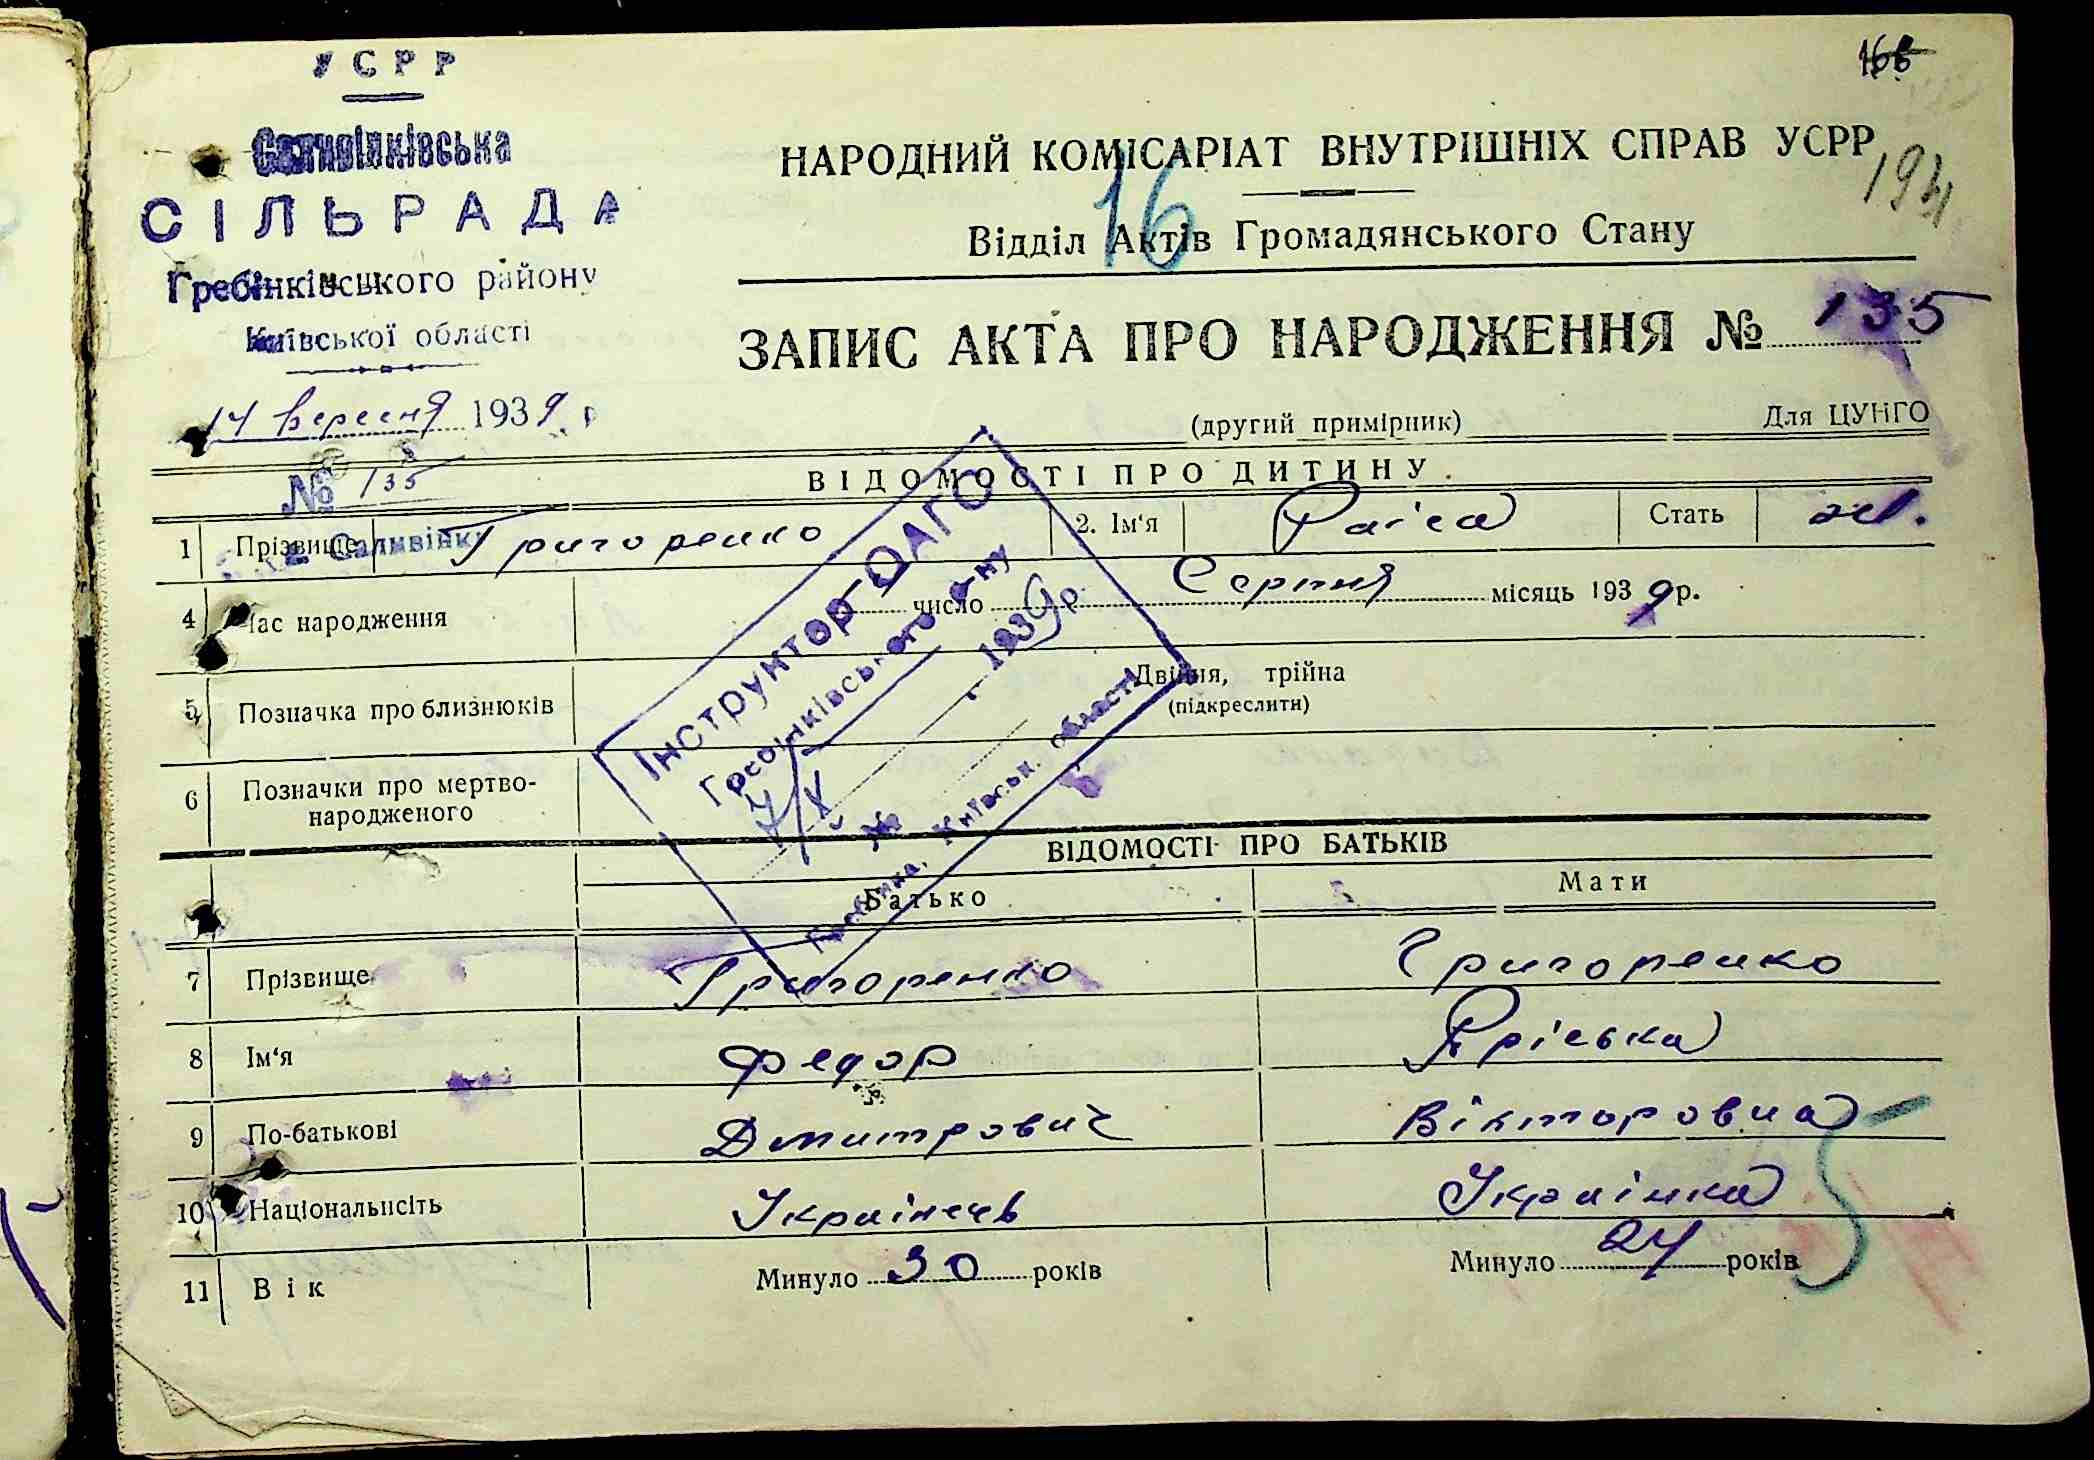 УСРР
Саливінківська
СІЛЬРАДА
Гребінківського району
Київської області
14 вересня 1939 р
№ 135
с. Саливінки
168
1931
16
НАРОДНИЙ КОМІСАРІАТ ВНУТРІШНІХ СПРАВ УСРР
Відділ Актів Громадянського Стану
ЗАПИС АКТА ПРО НАРОДЖЕННЯ № 135
(другий примірник) Для ЦУНГО
ВІДОМОСТІ ПРО ДИТИНУ
1 Прізвище Григоренко 2. Ім‘я Раїса Стать жі.
4 Час народження число Серпня місяць 1939 р.
5 Позначка про близнюків Двійня, трійна
(підкреслити)
6 Позначки про мертво-
народженого
Інструнтор ОАГС
Гребінківського р-ну
1939 р
№
Гребінка, Київськ. області
ВІДОМОСТІ ПРО БАТЬКІВ
Батько Мати
7 Прізвище Григоренко Григоренко
8 Ім‘я Федор Пріська
9 По-батькові Дмитрович Вікторовна
10 Національність Українець Українка
11 Вік Минуло 30 років Минуло 24 років